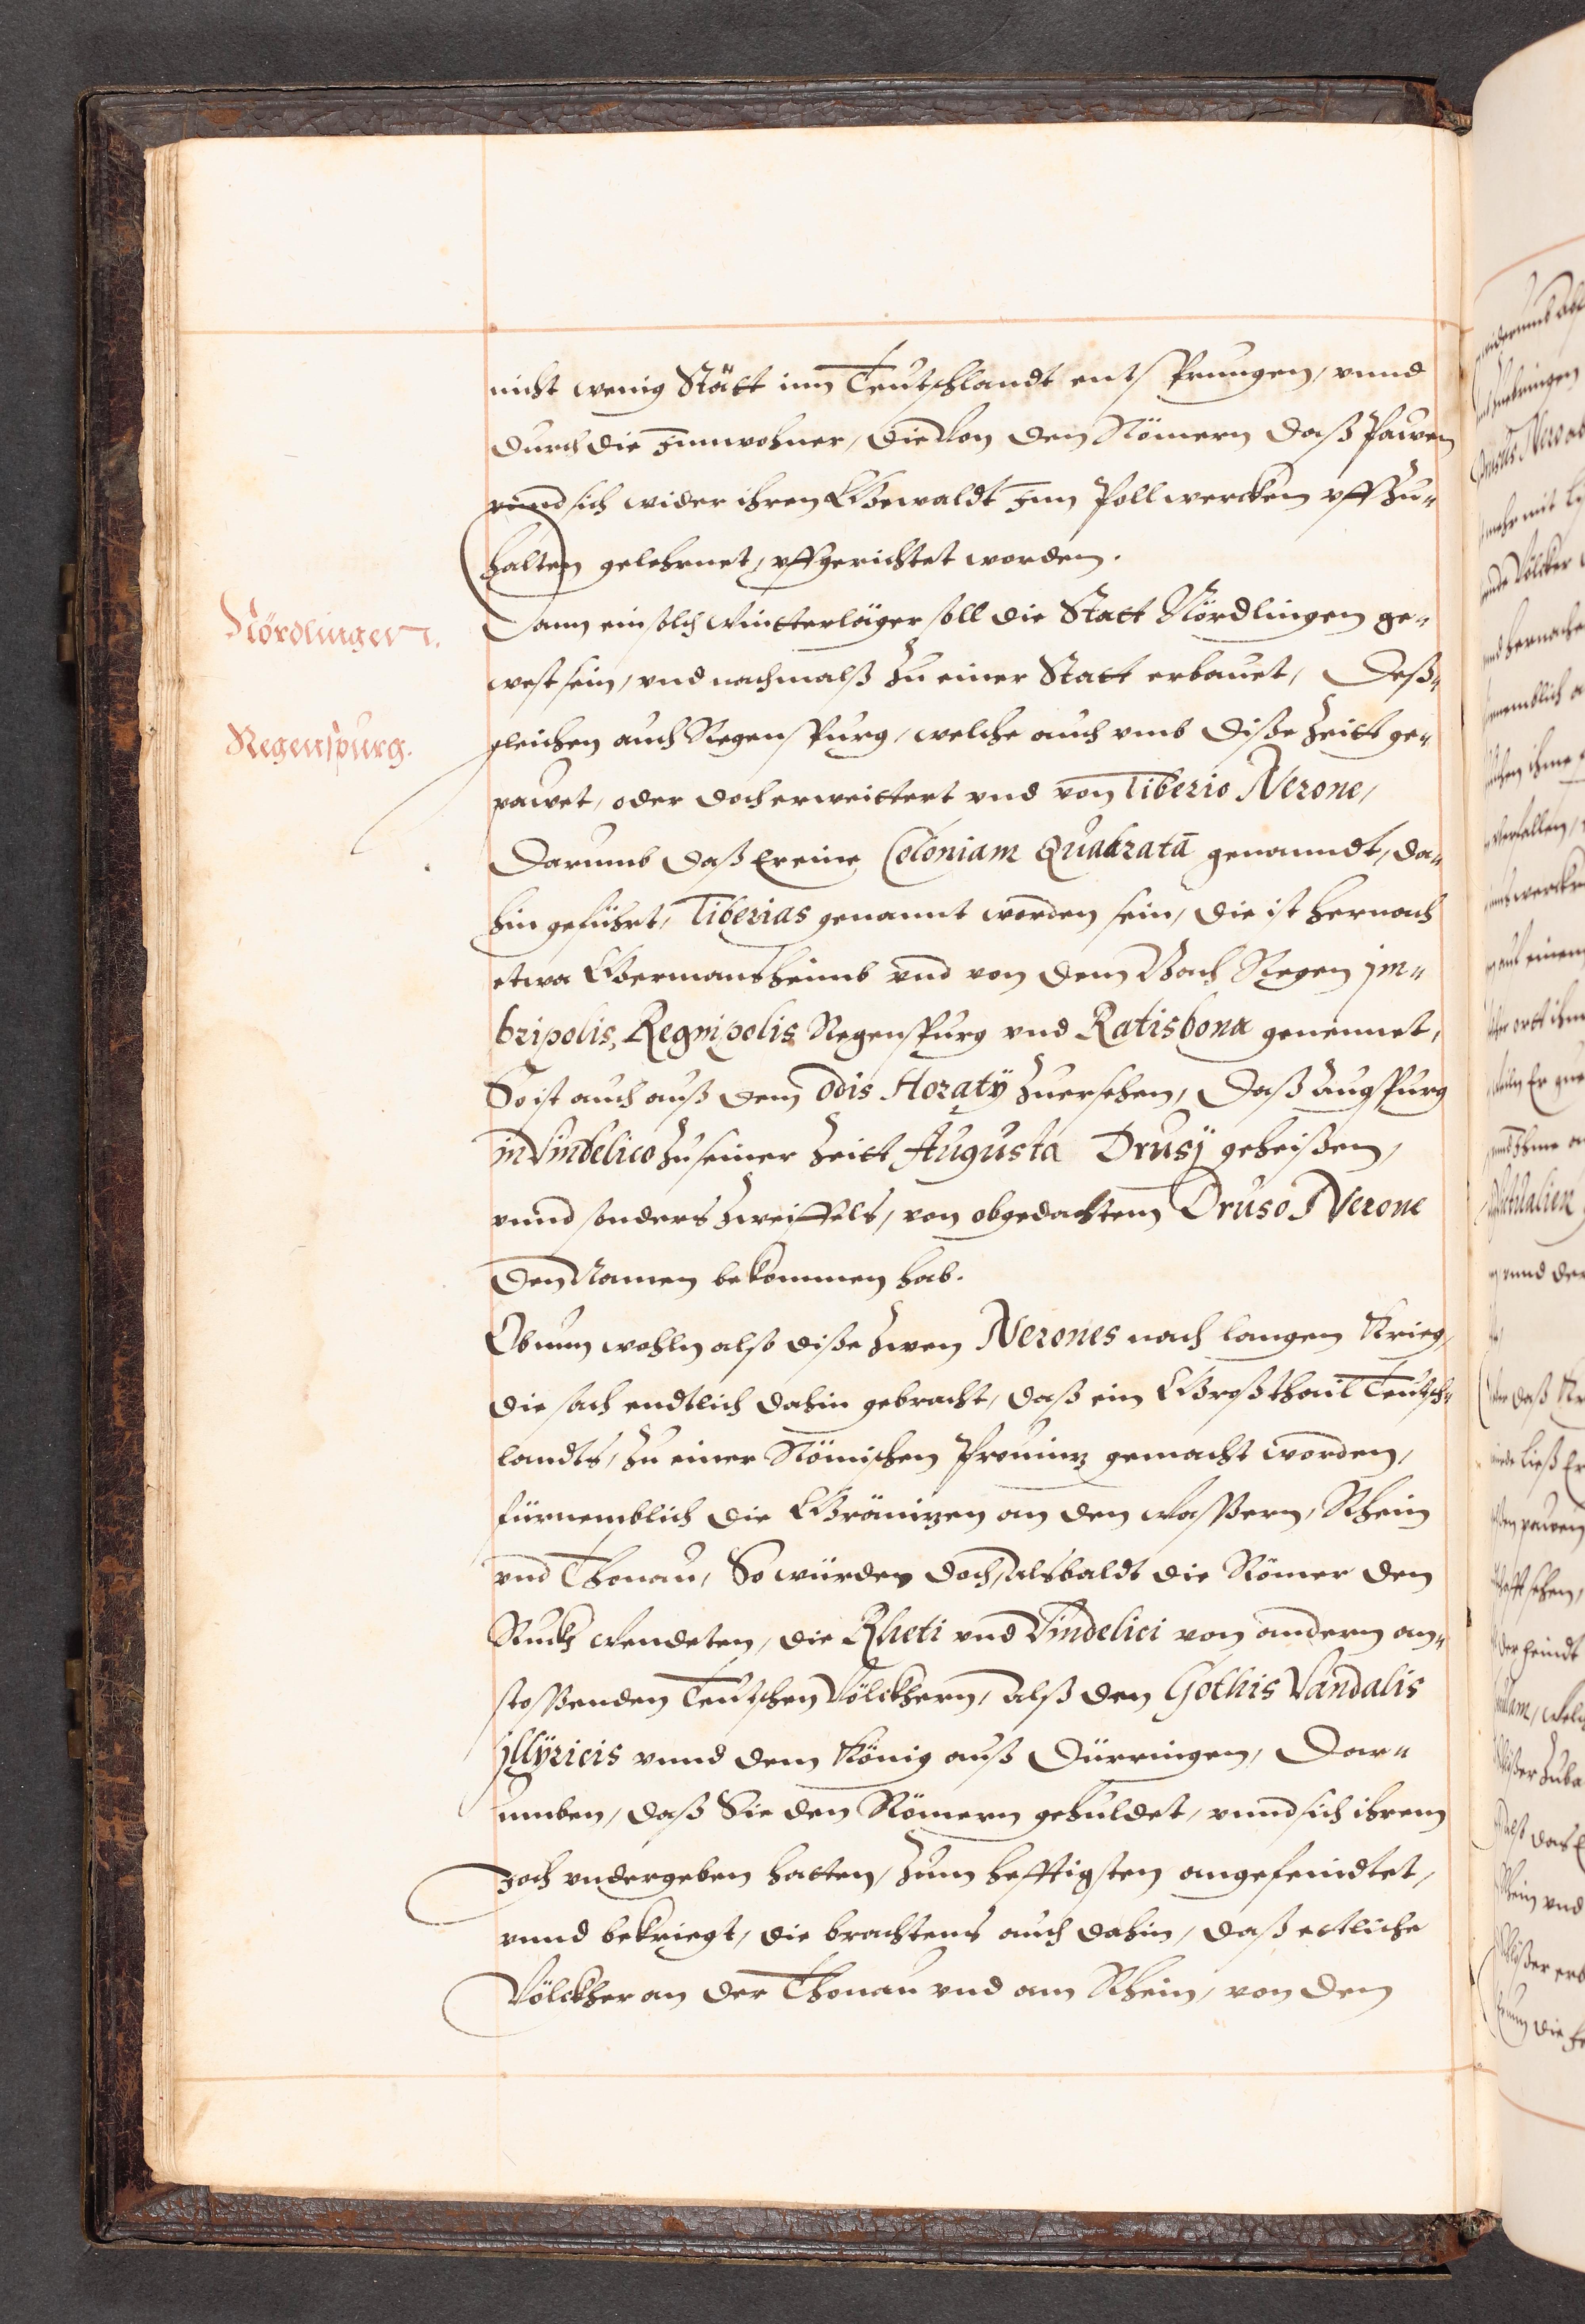 nicht wenig Stätt inn Teutschlandt entsprungen, vnnd
durch die Innwohner, die von den Römern daß Pawen
vnnd sich wider ihren Gewaldt Inn Pollwercken vffzu-
halten gelehrnet, vffgerichtet worden.
Nördlingen.
Dann ein solch Wintterläger soll die Statt Nördlingen ge-
west sein, vnd nachmalß zu einer Statt erbauet, Deß-
Regenspurg.
gleichen auch Regenspurg, welche auch vmb diße Zeitt ge-
pawet, oder doch erweittert vnd von Tiberio Nerone,
Darumb daß Er eine Coloniam Quadratā genanndt, da-
hin geführt, Tiberias genannt worden sein, die ist hernach
etwa Germansheimb vnd von dem Bach Regen jm-
bripolis, Regnipolis Regenspurg vnd Ratisbona genennet,
So ist auch auß dem odis Horatÿ zuersehen, Daß Augspurg
in Vindelico zu seiner Zeitt Augusta Drusÿ geheißen,
vnnd sonders Zweiffels, von obgedachtem Druso Nerone
den Namen bekommen hab.
Ob nun wohln also diße zwen Nerones nach langem Krieg,
die sach endtlich dahin gebracht, daß ein Großthail Teutsch-
landts, zu einer Römischen Prouinz gemacht worden,
fürnemblich die Gränizen an den Wassern, Rhein
vnd Thonau, So würden doch, alsbaldt die Römer den
Ruckh wendeten, die Rheti vnd Vindelici von andern an-
stossenden Teutschen Völckhern, alß den Gothis Vandalis
jllÿricis vnnd dem König auß Dürringen, Dar-
umben, daß Sie den Römern gehuldet, vnnd sich ihrem
Joch vndergeben hatten, zum hefftigsten angefeindtet,
vnnd bekriegt, die brachtens auch dahin, daß ettliche
Völckher an der Thonau vnd am Rhein, von den